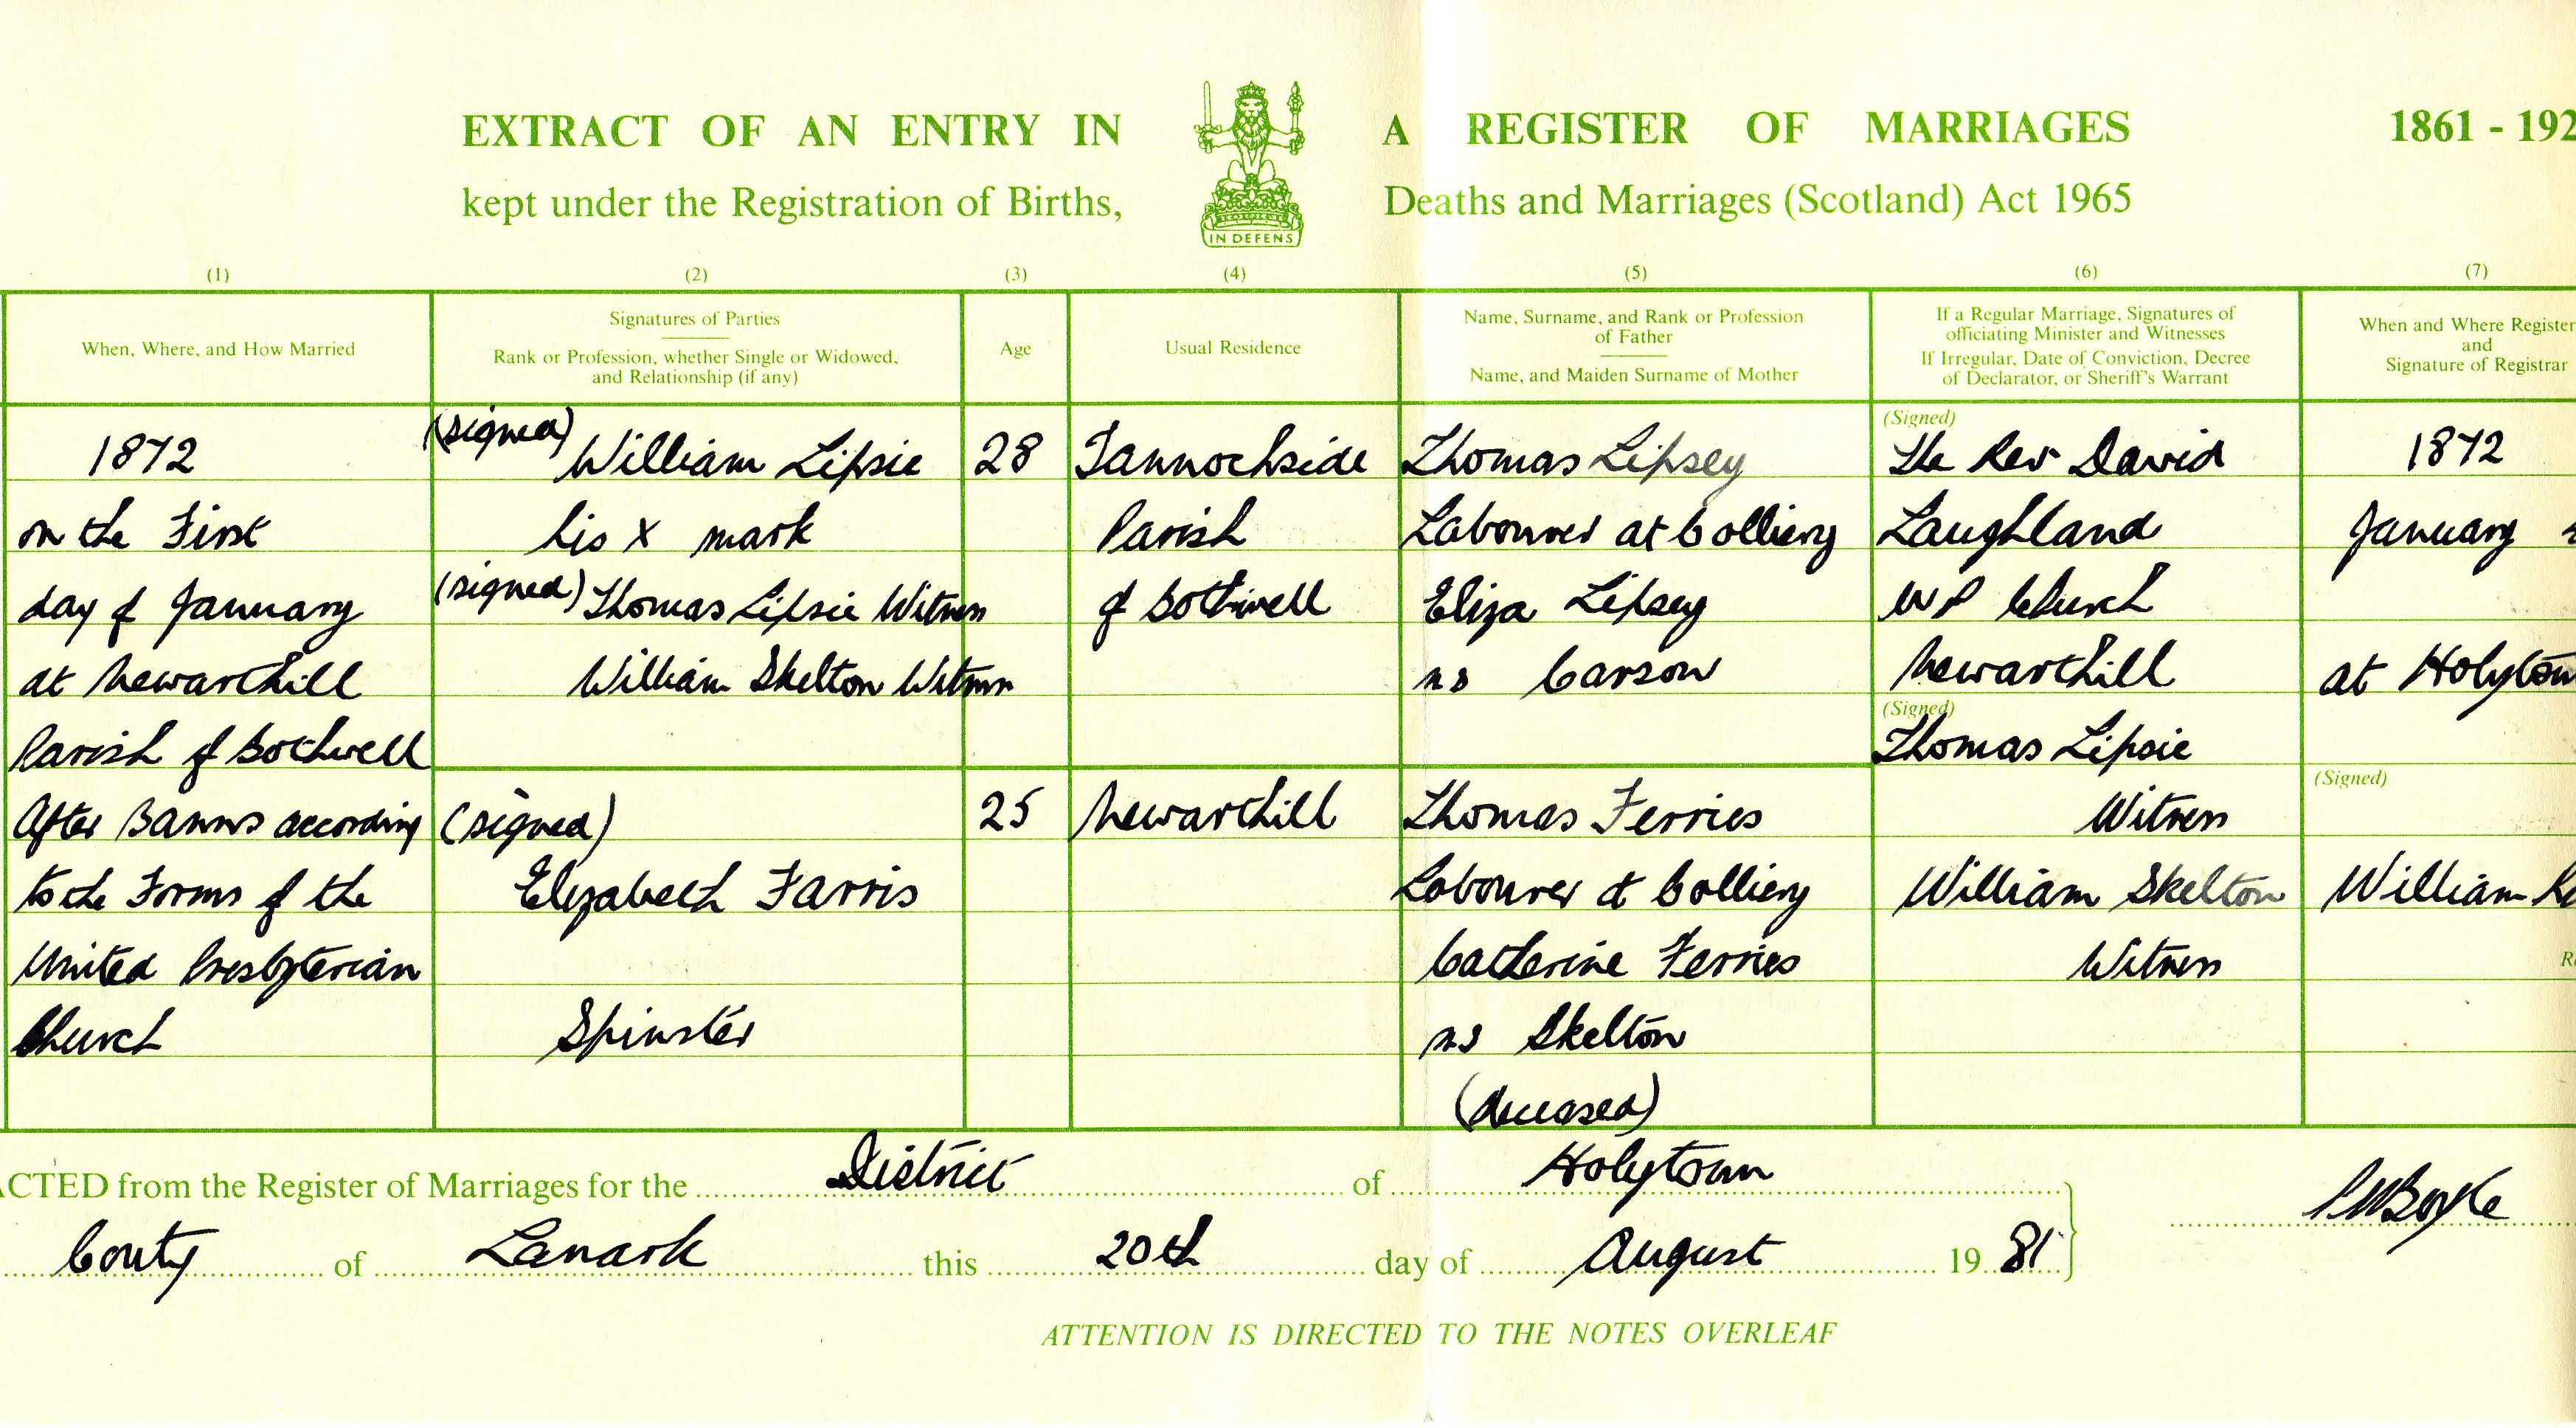 EXTRACT OF AN ENTRY IN A REGISTER OF MARRIAGES 1861 - 192
kept under the Registration of Births, Deaths and Marriages (Scotland) Act 1965
IN DEFENS
(1) (2) (3) (4) (5) (6) (7)
When, Where, and How Married
Signatures of Parties
Rank or Profession, whether Single or Widowed,
and Relationship (if any)
Age
Usual Residence
Name, Surname, and Rank or Profession
of Father
Name, and Maiden Surname of Mother
If a Regular Marriage, Signatures of
officiating Minister and Witnesses
If Irregular, Date of Conviction, Decree
of Declarator, or Sheriff's Warrant
When and Where Register
and
Signature of Registrar
1872
on the First
day of January
at Newarthill
Parish of Bothwell
After Banns according
to the Forms of the
United Presbyterian
Church
(signed) William Lipsie
his x mark
(signed) Thomas Lipsie Witness
William Skelton Witness
28
Tannochside
Parish
of Bothwell
Thomas Lipsey
Labourer at Colliery
Eliza Lipsey
ms Carson
(signed)
Elizabeth Farris
Spinster
25
Newarthill
Thomas Ferries
Labourer at Colliery
Catherine Ferries
ms Skelton
(deceased)
(Signed)
The Rev David
Laughland
UP Church
Newarthill
(Signed)
Thomas Lipsie
Witness
William Skelton
Witness
1872
January
at Holytown
(Signed)
William
ACTED from the Register of Marriages for the District of Holytown
County of Lanark this 20th day of August 1981
ATTENTION IS DIRECTED TO THE NOTES OVERLEAF